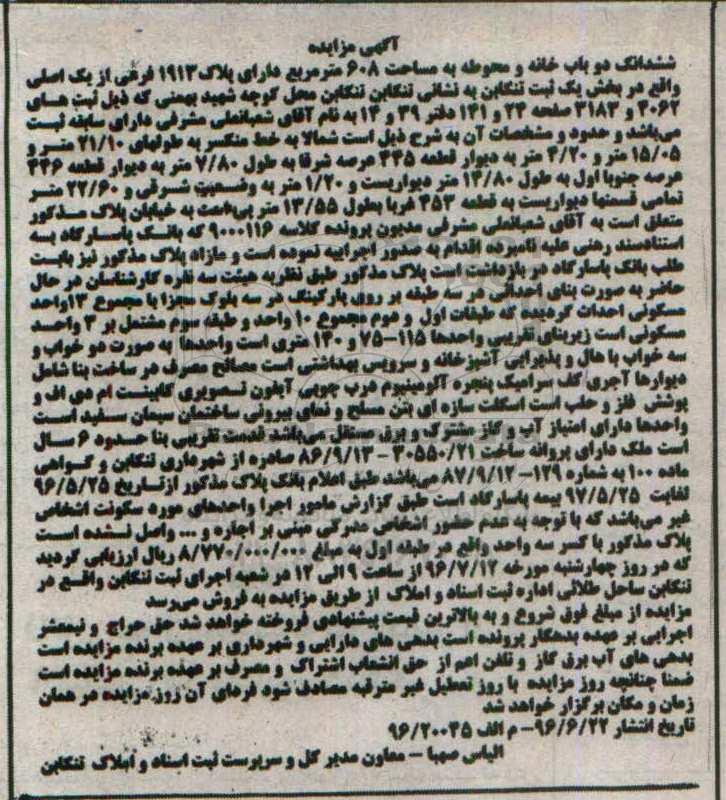 آگهی مزایده
ششدانگ دو باب خانه و محوطه به مساحت ۶۰۸ مترمربع دارای پلاک ۱۹۱۳ فرعی از یک اصلی
واقع در بخش یک ثبت تنکابن به نشانی تنکابن تنکابن محل کوچه شهید بهمنی که ذیل ثبت های
۳۰۶۲ و ۳۱۸۳ صفحه ۲۴ و ۱۴۱ دفتر ۳۹ و ۱۴ به نام آقای شعبانعلی مشرفی دارای سابقه ثبت
می‌باشد و حدود و مشخصات آن به شرح ذیل است شمالا به خط منکسر به طولهای ۲۱/۱۰ متر و
۱۵/۰۵ متر و ۴/۲۰ متر به دیوار قطعه ۳۳۵ عرصه شرقا به طول ۷/۸۰ متر به دیوار قطعه ۳۳۶
عرصه جنوبا اول به طول ۱۳/۸۰ متر دیواریست و ۱/۲۰ متر به وضعیت شرقی و ۲۲/۶۰ متر
تمامی قسمتها دیواریست به قطعه ۳۵۳ غربا بطول ۱۳/۵۵ متر پی‌است به خیابان پلاک مذکور
متعلق است به آقای شعبانعلی مشرفی مدیون پرونده کلاسه ۹۰۰۰۱۱۶ که بانک پاسارگاد به
استناد سند رهنی علیه نامبرده اقدام به صدور اجراییه نموده است و مازاد پلاک مذکور نیز بابت
طلب بانک پاسارگاد در بازداشت است پلاک مذکور طبق نظریه هیئت سه نفره کارشناسان در حال
حاضر به صورت بنای احداثی در سه طبقه بر روی پارکینگ در سه بلوک مجزا با مجموع ۱۳ واحد
مسکونی احداث گردیده که طبقات اول و دوم مجموع ۱۰ واحد و طبقه سوم مشتمل بر ۳ واحد
مسکونی است زیربنای تقریبی واحدها ۱۱۵-۷۵ و ۱۴۰ متری است واحدها به صورت دو خواب و
سه خواب با هال و پذیرایی آشپزخانه و سرویس بهداشتی است مصالح مصرف در ساخت بنا شامل
دیوارها آجری کف سرامیک پنجره آلومینیوم درب چوبی آیفون تصویری کابینت ام دی اف و
پوشش فلز و حلب است اسکلت سازه ای بتن مسلح و نمای بیرونی ساختمان سیمان سفید است
واحدها دارای امتیاز آب و گاز مشترک و برق مستقل می‌باشد قدمت تقریبی بنا حدود ۶ سال
است ملک دارای پروانه ساخت ۳۰۵۵۰/۲۱ - ۸۶/۹/۱۳ صادره از شهرداری تنکابن و گواهی
ماده ۱۰۰ به شماره ۱۲۹- ۸۷/۹/۱۲ می‌باشد طبق اعلام بانک پلاک مذکور از تاریخ ۹۶/۵/۲۵
لغایت ۹۷/۵/۲۵ بیمه پاسارگاد است طبق گزارش مامور اجرا واحدهای مورد سکونت اشخاص
غیر می‌باشد که با توجه به عدم حضور اشخاص مدرکی مبنی بر اجاره و ... واصل نشده است
پلاک مذکور با کسر سه واحد واقع در طبقه اول به مبلغ ۸/۷۷۰/۰۰۰/۰۰۰ ریال ارزیابی گردید
که در روز چهارشنبه مورخه ۹۶/۷/۱۲ از ساعت ۹ الی ۱۲ در شعبه اجرای ثبت تنکابن واقع در
تنکابن ساحل طلائی اداره ثبت اسناد و املاک از طریق مزایده به فروش می‌رسد
مزایده از مبلغ فوق شروع و به بالاترین قیمت پیشنهادی فروخته خواهد شد حق حراج و نیمعشر
اجرایی بر عهده بدهکار پرونده است بدهی های دارایی و شهرداری بر عهده برنده مزایده است
بدهی های آب برق گاز و تلفن اهم از حق انشعاب اشتراک و مصرف بر عهده برنده مزایده است
ضمنا چنانچه روز مزایده با روز تعطیل غیر مترقبه مصادف شود فردای آن روز مزایده در همان
زمان و مکان برگزار خواهد شد
تاریخ انتشار ۹۶/۶/۲۲- م الف ۹۶/۲۰۰۳۵
الیاس صهبا - معاون مدیر کل و سرپرست ثبت اسناد و املاک تنکابن